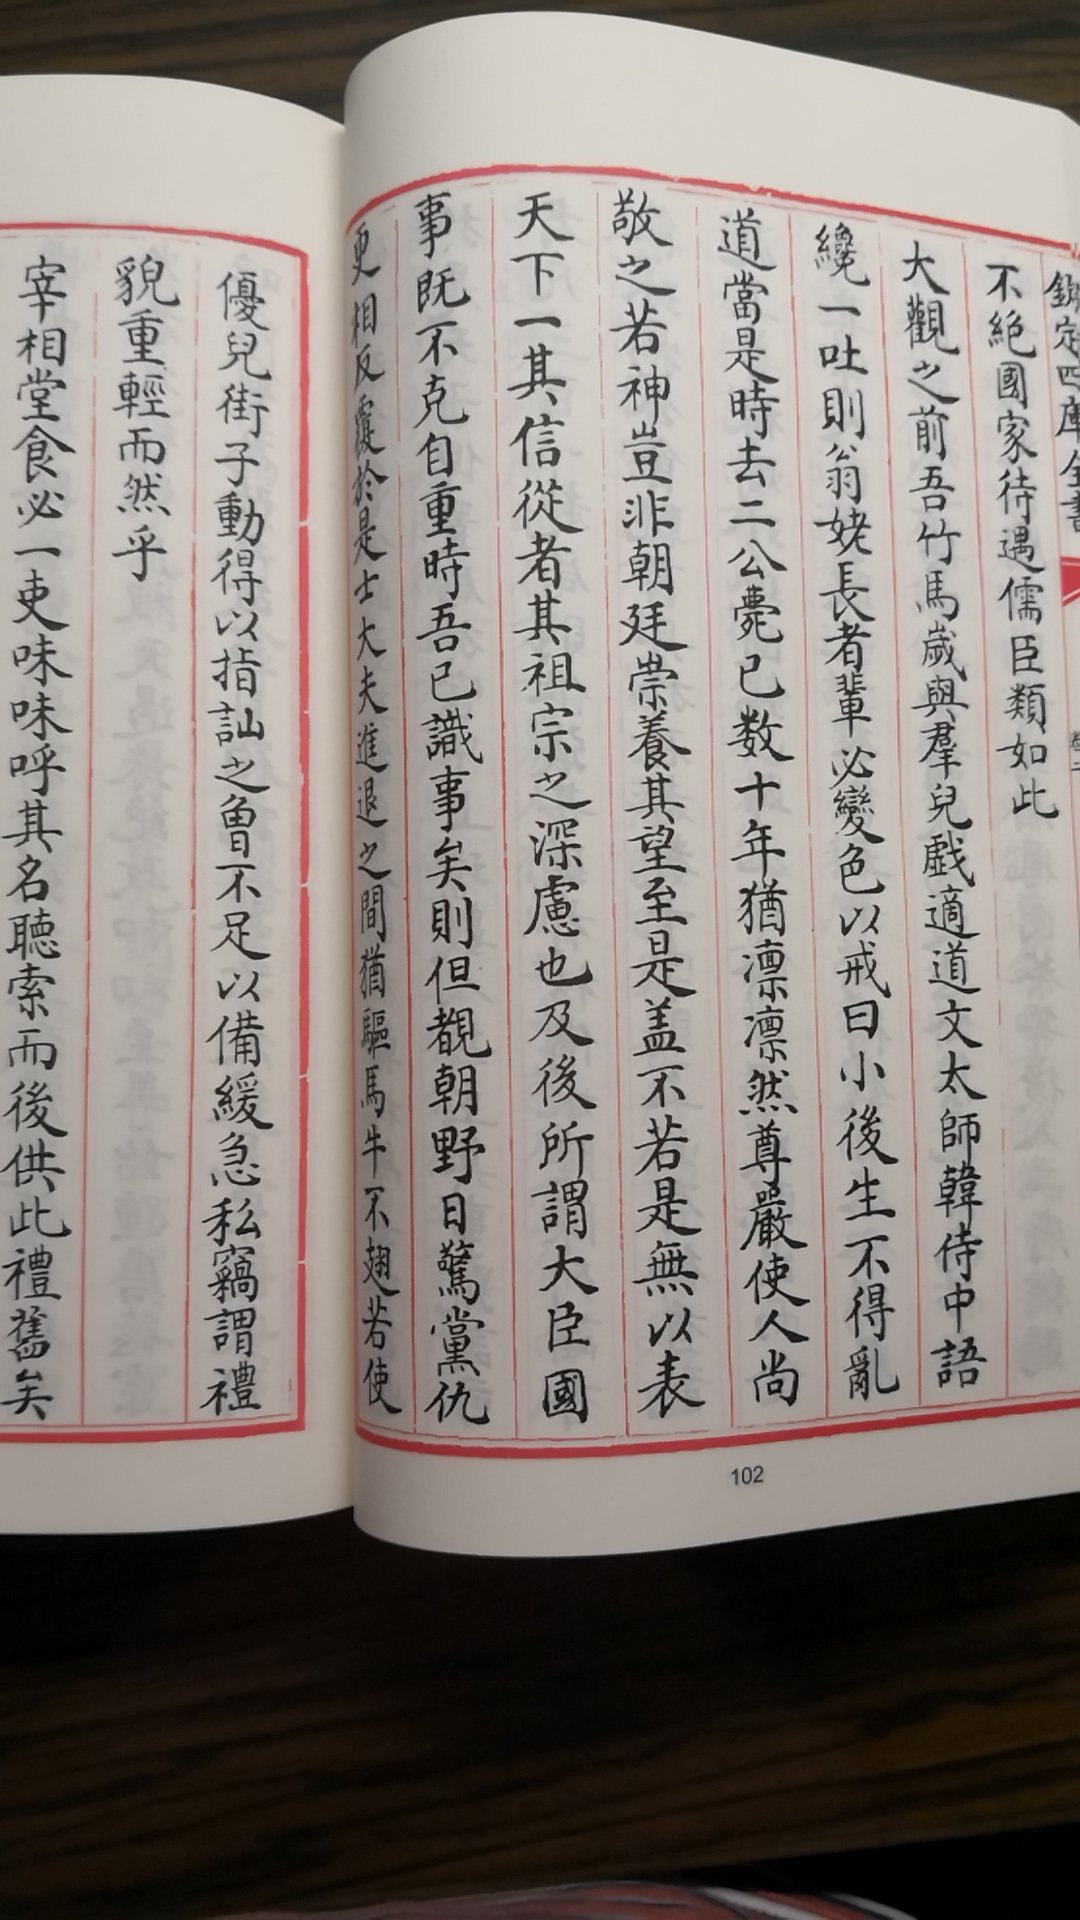 欽定四庫全書
不絕國家待遇儒臣類如此
大觀之前吾竹馬歲與羣兒戲適道文太師韓侍中語
纔一吐則翁姥長者輩必變色以戒曰小後生不得亂
道當是時去二公薨已数十年猶凛凛然尊嚴使人尚
敬之若神豈非朝廷崇養其望至是盖不若是無以表
天下一其信從者其祖宗之深慮也及後所謂大臣國
事既不克自重時吾已識事矣則但覩朝野日驚黨仇
更相反覆於是士大夫進退之間猶驅馬牛不翅若使
102
優兒街子動得以指訕之曾不足以備緩急私竊謂禮
貌重輕而然乎
宰相堂食必一吏味味呼其名聽索而後供此禮舊矣